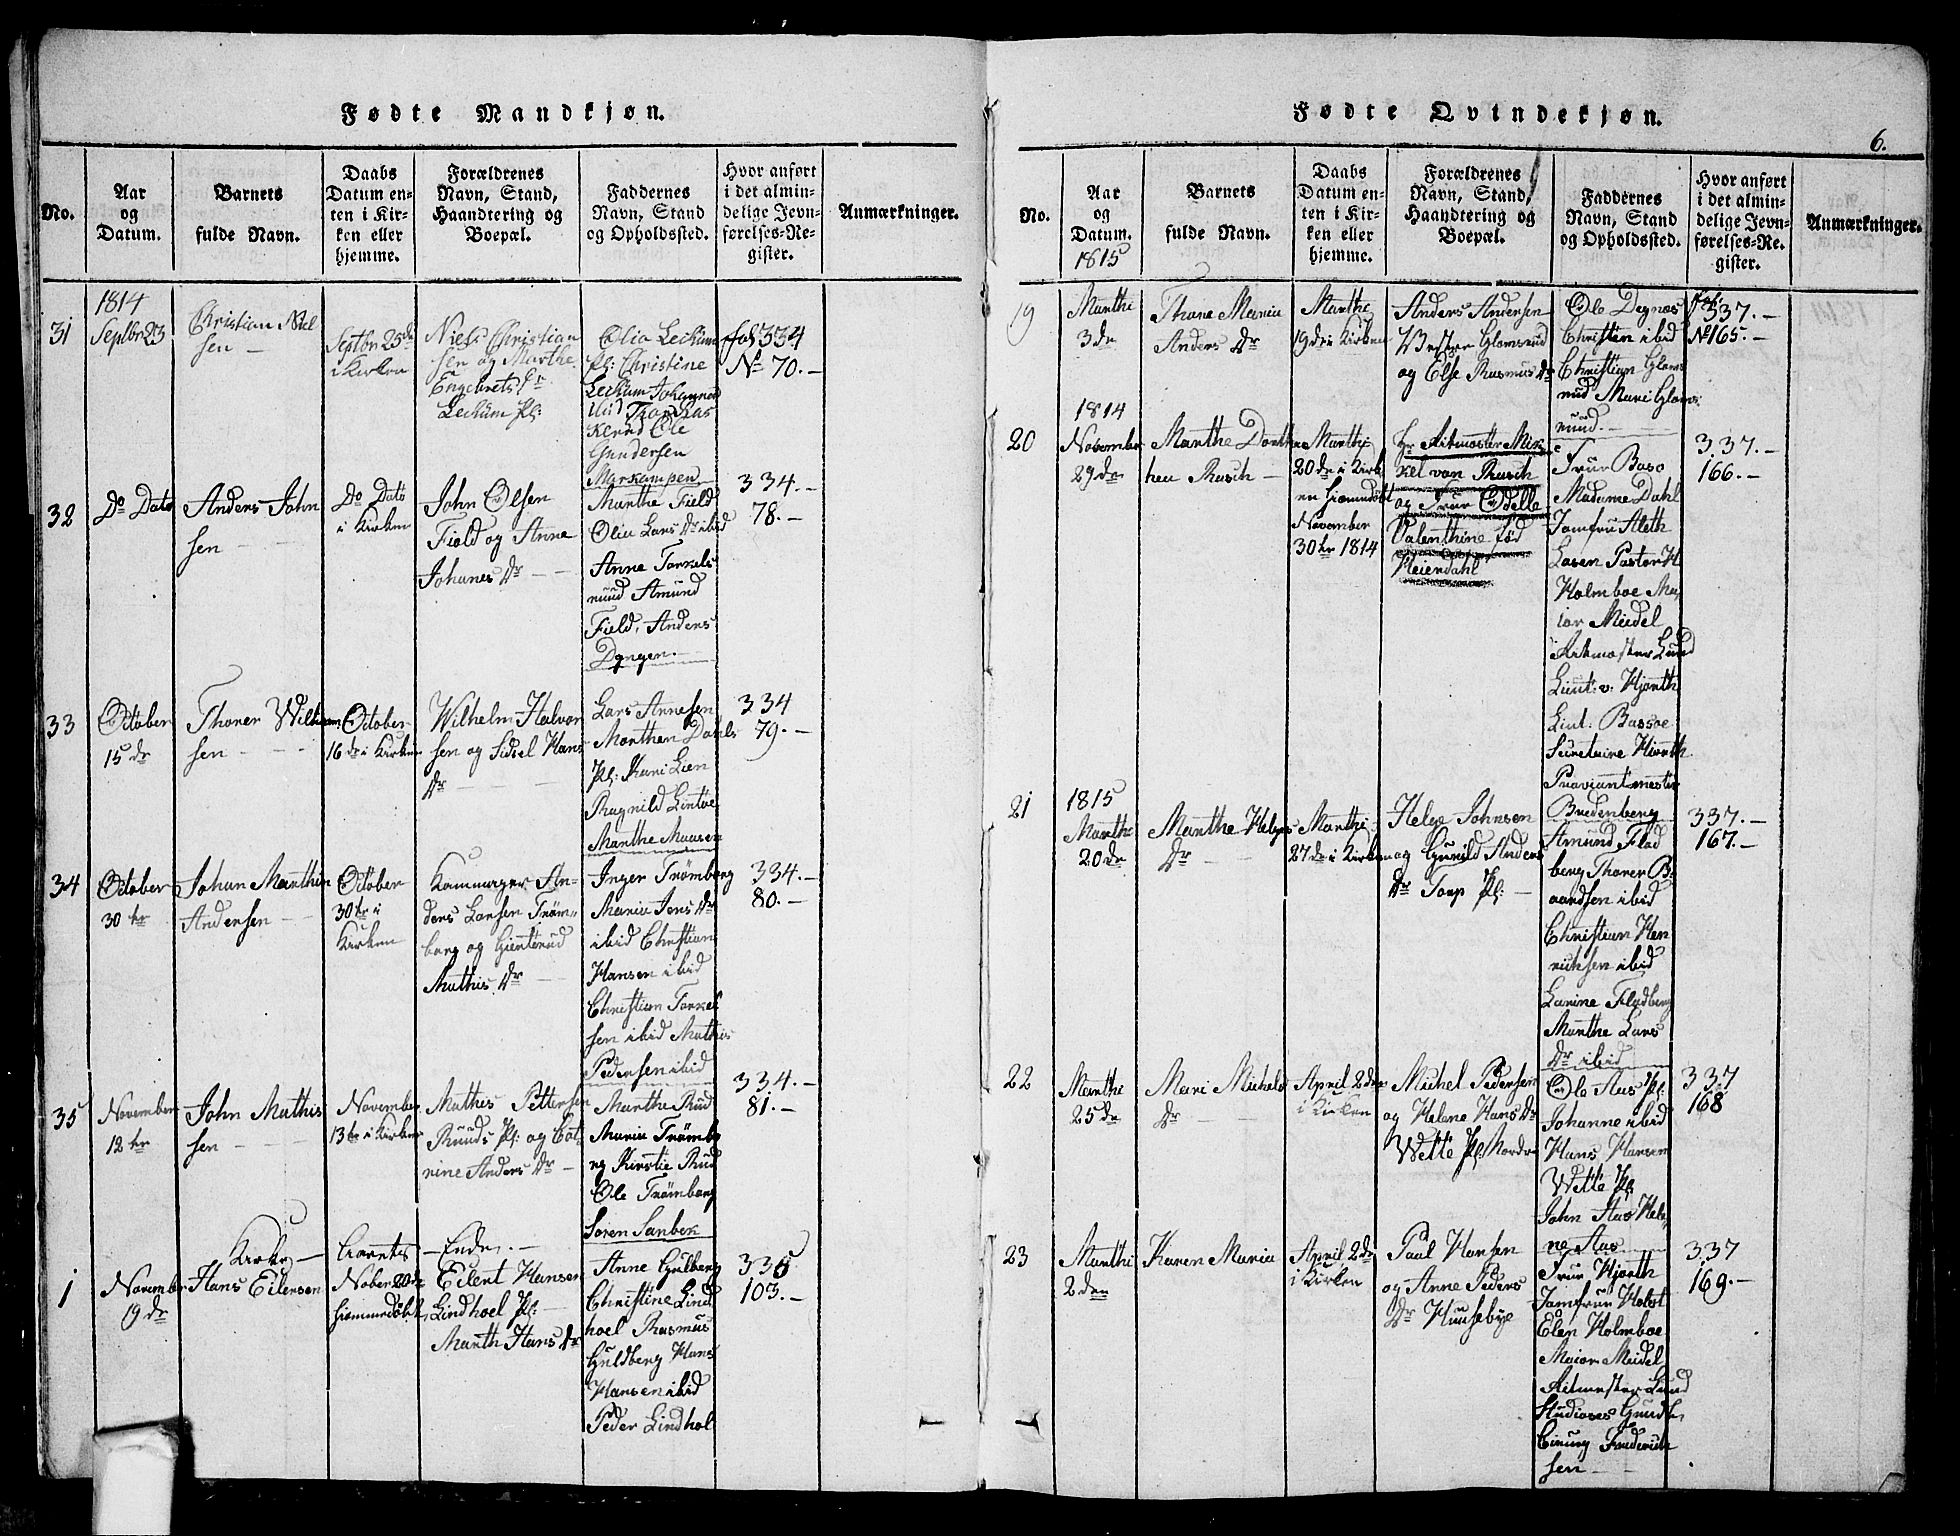 Fødte Mandkjøn.
No.
Aar
og
Datum.
Barnets
fulde Navn.
Daabs
Datum en-
ten i Kir-
ken eller
hjemme.
Forældrenes
Navn, Stand,
Haandtering og
Boepæl.
Faddernes
Navn, Stand
og Opholdssted.
Hvor anført
i det almin-
delige Jevn-
førelses-Re-
gister.
Anmærkninger.
31
1814
Septbr 23
Christian Niel
sen
Septbr 25de
i Kirken
Niels Christian
sen og Marthe
Engebrets Dr
Leckum Pl:
Olia Leckum
Pl: Christine
Leckum Johannes
ibid
Ole
Gundersen
Markampen
fol 334
No 70.
32
Do Dato
Anders John
sen
Do Dato
i Kirken
John Olsen
Field og Anne
Johanes Dr
Marthe Field
Olia Lars Dr ibid
Anne Torkels
rund Amund
Field, Anders
Dyngen.
334.
78.
33
October
15de
Thorer Wilhelm
sen
October
16de i Kirken
Wilhelm Halvor
sen og Sidsel Hans
Dr
Lars Annesen
Marthen Dahls
Pl: Kari Lien
Ragnild Lintoe
Marthe Maasen
334
79.
34
October
30te
Johan Marthin
Andersen
October
30te i
Kirken
Kammager An-
ders Larsen Tröm-
borg og Giertrud
Mathis Dr
Inger Trömborg
Maria Jens Dr
ibid Christian
Hansen ibid
Christian Torkel
sen ibid Mathis
Pedersen ibid
334.
80.
35
November
12te
John Mathis
sen
November
13te i Kirken
Mathis Pettersen
Ruuds Pl: og Cat
rine Anders Dr
Marthe Rud
Maria Trömbo
rg Kirstie Rud
Ole Tromborg
Soren Sanbek
334.
81.
Kirke
Aarets
Ende.
1
November
19de
Hans Eilersen
Nober 20de
hiemmedöbt
Eilert Hansen
Lindhoel Pl:
Marth Hans Dr
Anne Gulberg
Christine Lind
hoel Rasmus
Guldberg Hans
Hansen ibid
Peder Lindhol
335
103.
Fødte Qvindekjøn.
6.
No.
Aar
og
Datum.
1815
Barnets
fulde Navn.
Daabs
Datum en-
ten i Kir-
ken eller
hjemme.
Forældrenes
Navn, Stand,
Haandtering og
Boepæl.
Faddernes
Navn, Stand
og Opholdssted.
Hvor anført
i det almin-
delige Jevn-
førelses-Re-
gister.
Anmærkninger.
19
Marthi
3de
Thone Maria
Anders Dr
Marthi
19de i Kirken
Anders Andersen
Vestre Glomsrud
og Else Rasmus Dr
Ole Degnes
Christen ibid
Christian Gloms
rud Mari Gloms
rund.
fol:
337.
No 165.
20
1814
November
29de
Marthe Dorthe
hea Rusch
Marthi
20de i Kirk
en hiemmedöbt
November
30te 1814
Hr Ritmester Mik
kel von Rusch
og Frue Odelle
Valenthine föd
Heierdahl
Frue Basso
Madame Dahl
Jomfru Aleth
Lasen Pastor H
Holmboe Ma
ior Meidel
Ritmester Lund
Lieut: v. Hjorth
Liut: Bassoe
Secretaire Hiorth
Proviantmester
Bredenberg
3.37.
166.
21
1815
Marthi
20de
Marthe Helges
Dr
Marthi
27de i Kirken
Helge Johnsen
og Gunild Anders
Dr Torp Pl:
Amund Flad
berg Thorer B
aardsen ibid
Christian Hen
richsen ibid
Larine Fladberg
Marthe Lars
Dr ibid
337.
167.
22
Marthi
25de
Mari Michels
Dr
April 2den
i Kirken
Michel Pedersen
og Helene Hans Dr
Wette Pl: Nordre
Ole Aas Pl:
Johanne ibid
Hans Hansen
Wette Pl:
John Aas Hele
ne Aas
337
168
23
Marthi
2den
Karen Maria
April 2de
i Kirken
Paul Hansen
og Anne Peders
Dr Huusebye
Frue Hjorth
Jomfrue Holst
Elen Holmboe
Maior Meidel
Ritmester Lund
Studioses
Cirurg Frederich
sen
337
169.